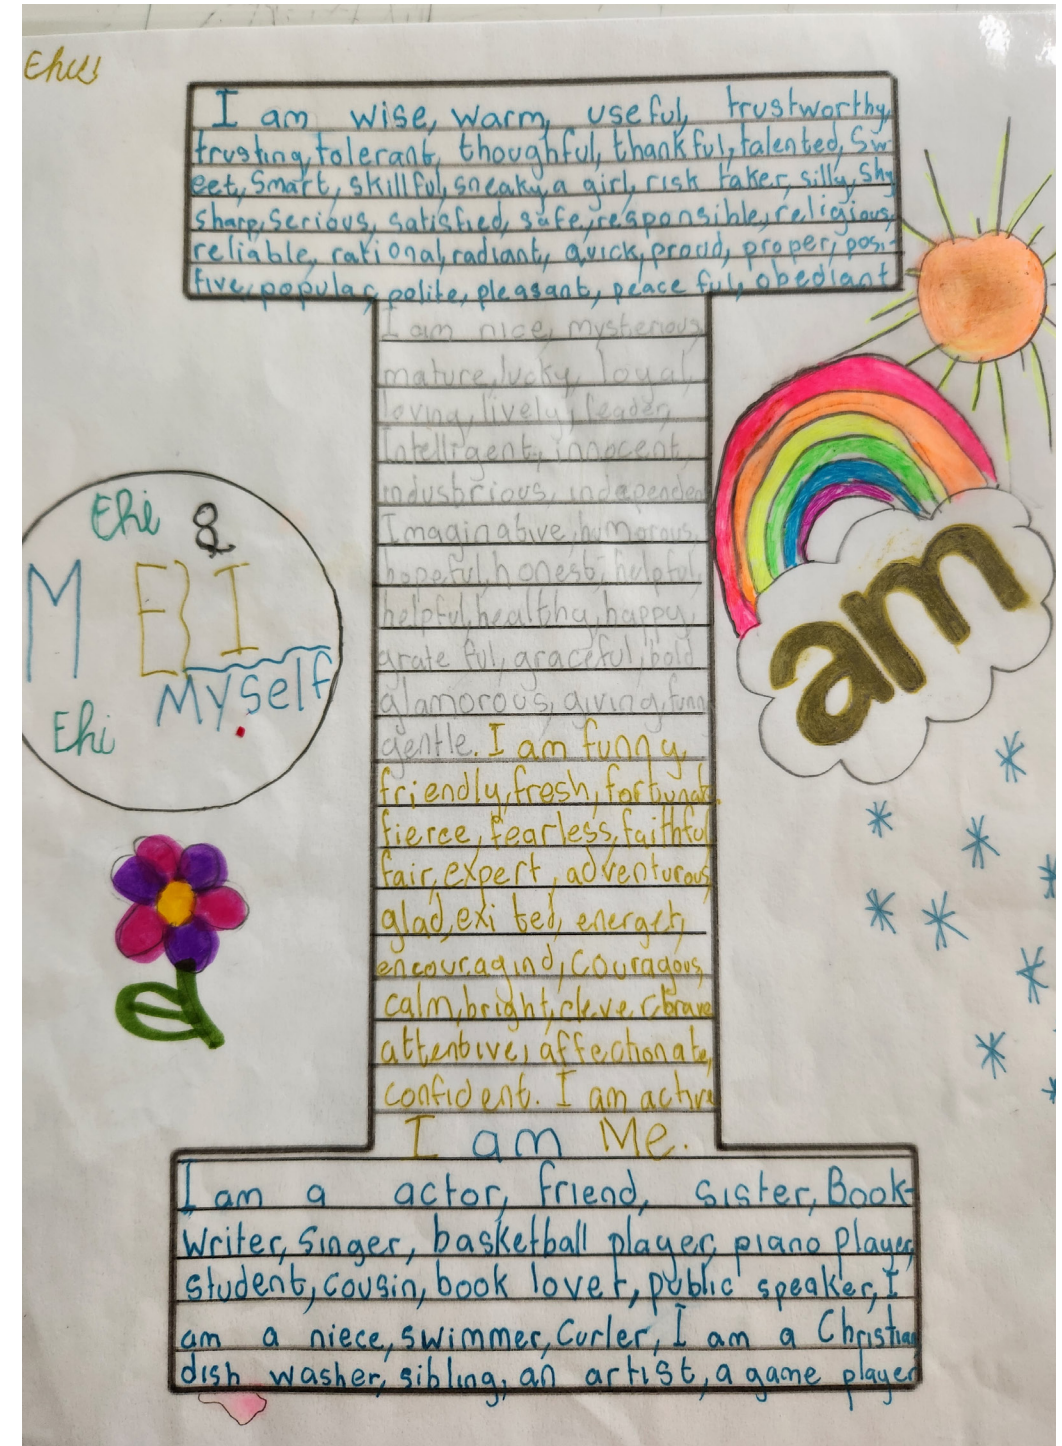 Ehi
I am wise, warm, useful, trustworthy,
trusting, tolerant, thoughful, thankful, talented, Sw
eet, Smart, skillful, sneaky, a girl, risk taker, silly, Shy
sharp, serious, satisfied, safe, responsible, religious,
reliable, rational, radiant, quick, proud, proper, posi-
tive, popular, polite, pleasant, peace ful, obediant
I am nice, mysterious
mature, lucky, loyal,
loving, lively, leader,
Intelligent, innocent,
industrious, independen
Imaginative, humorous,
hopeful, honest, helpful,
helpful, healthy, happy,
grate ful, graceful, bold
glamorous, giving, funn
gentle. I am funny,
friendly, fresh, fortunate
fierce, fearless, faithful
fair, expert, adventurous
glad, exi ted, energet,
encouragind, couragous,
calm, bright, clever, brave
attentive, affectionate,
confident. I am active
I am Me.
I am a actor, friend, sister, Book-
Writer, Singer, basketball player, piano player,
student, cousin, book lover, public speaker, I
am a niece, swimmer, Curler, I am a Christian
dish washer, sibling, an artist, a game player
Ehi &
M E I
Myself
Ehi
am